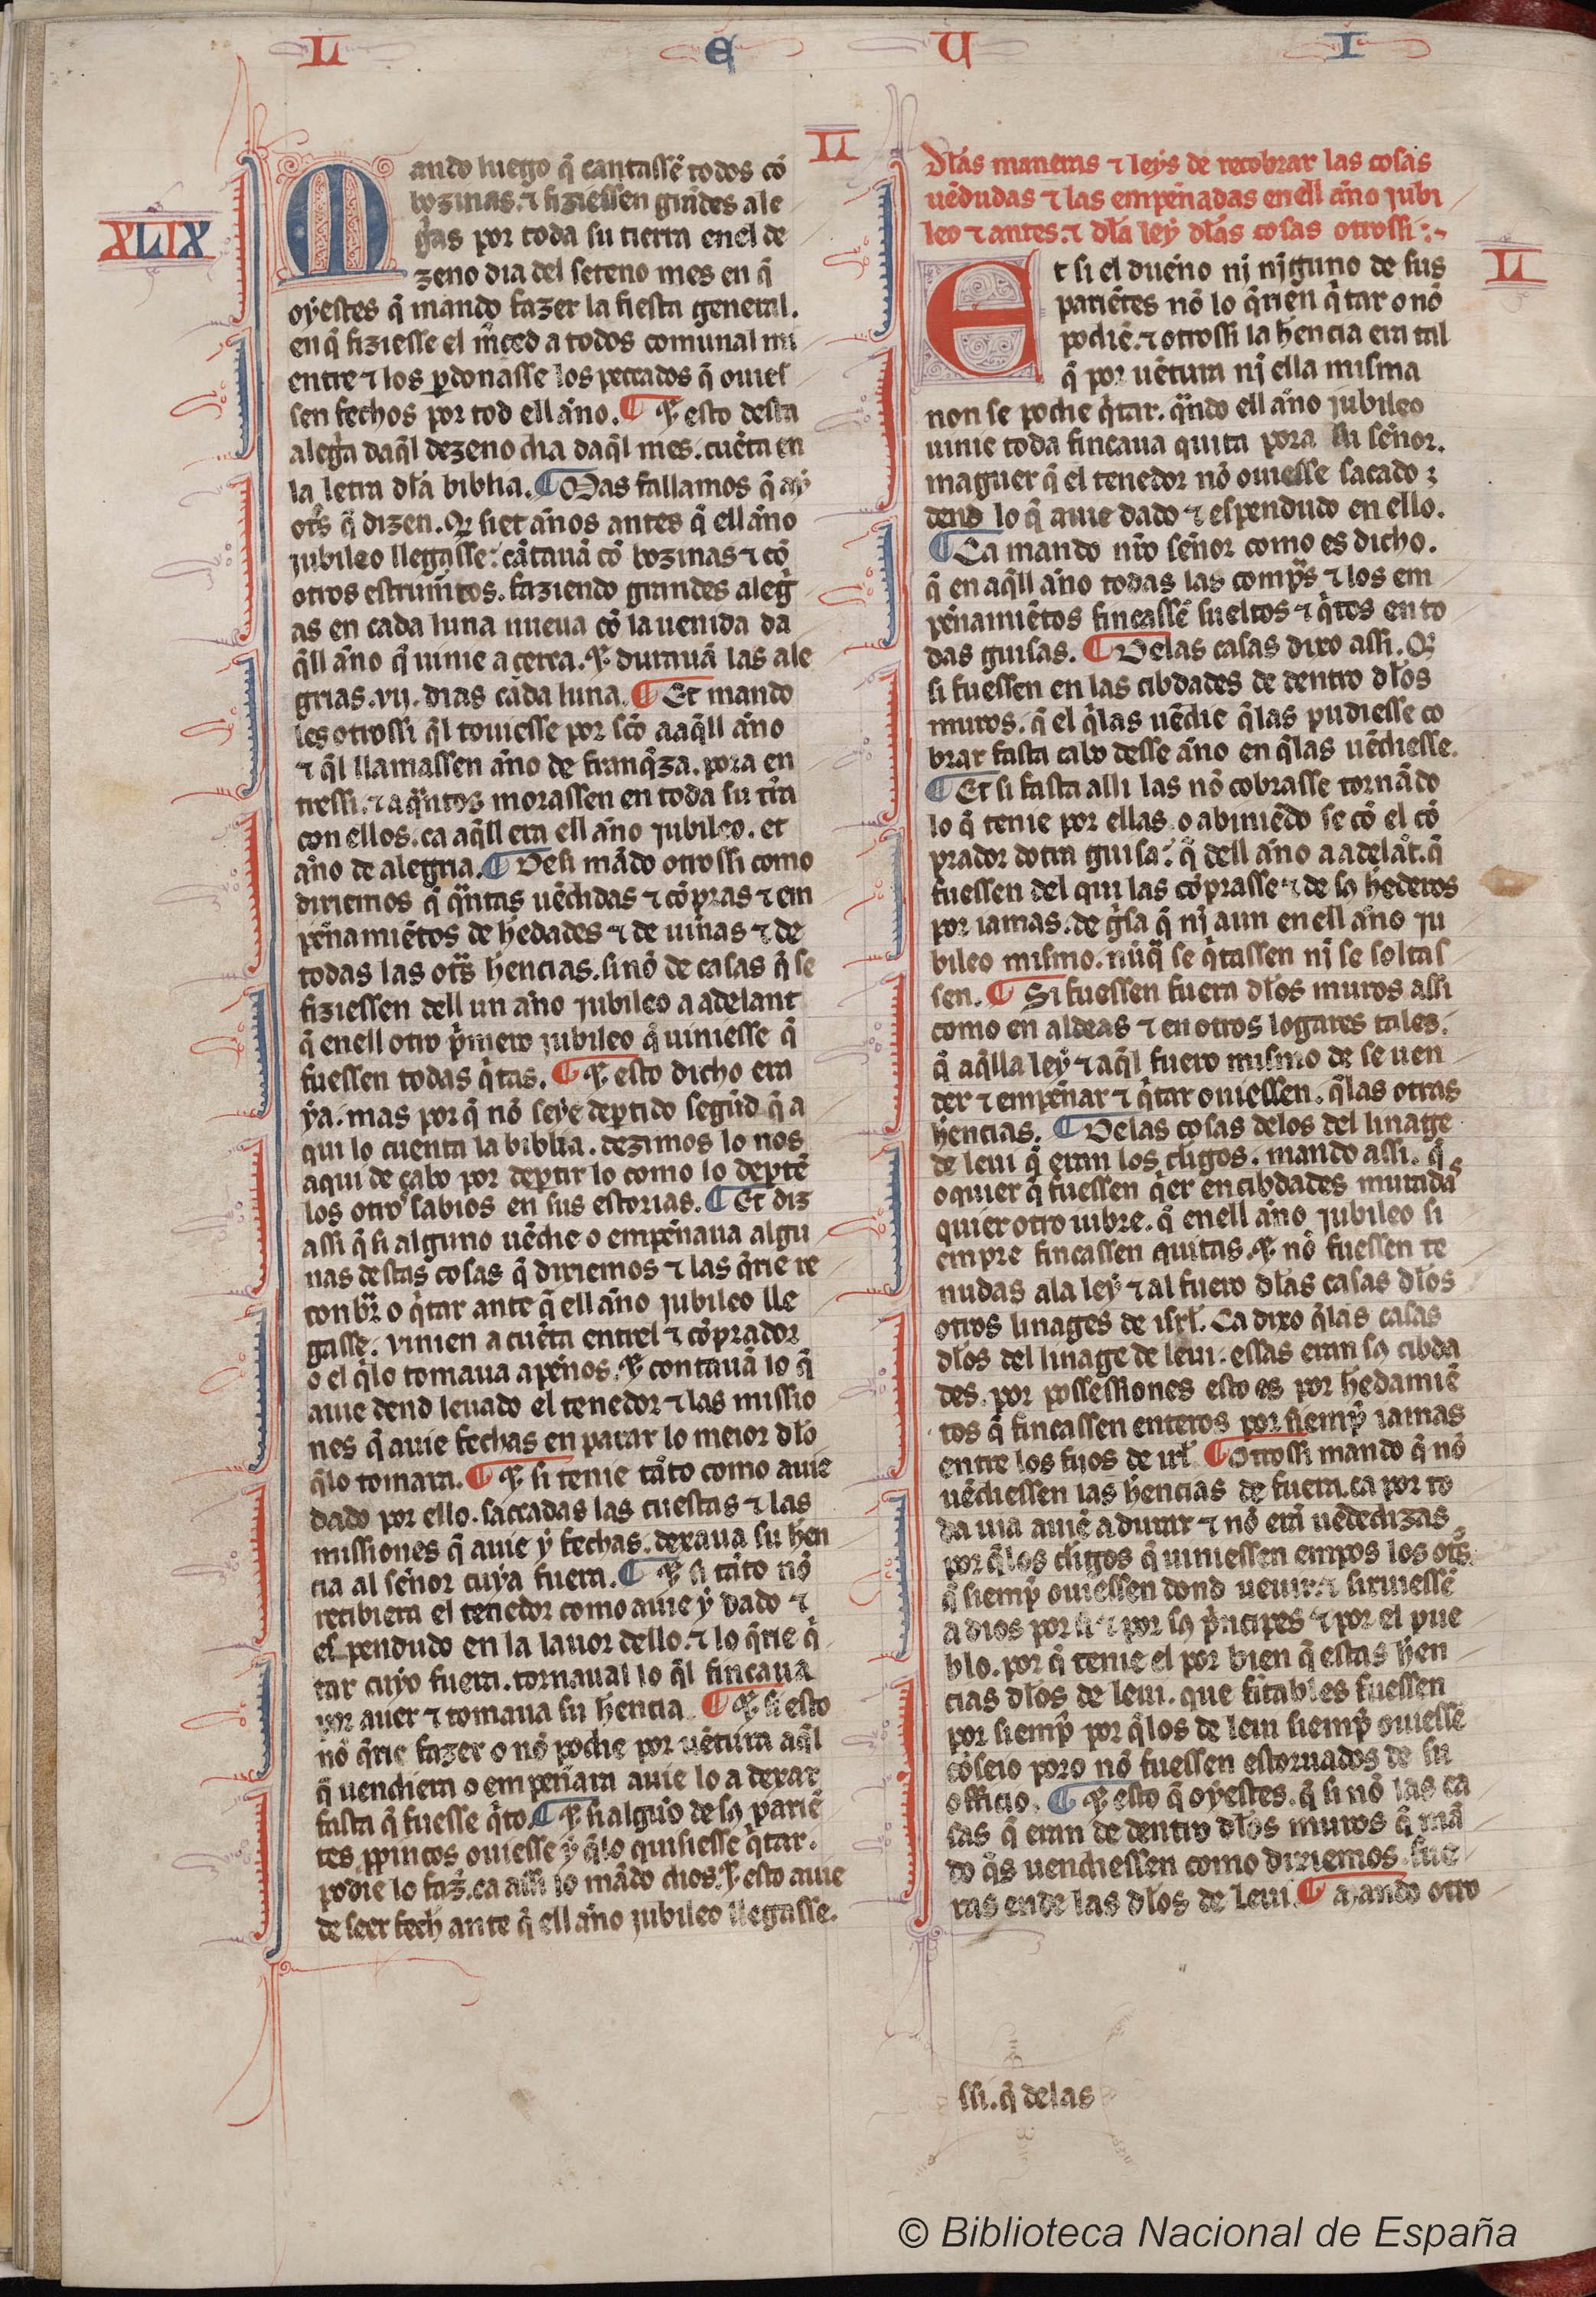 L E U I
XLIX
Mando luego q̃ cantassẽ todos cõ
bozinas. ⁊ fiziessen grãdes ale
gͥas por toda su tierra enel de
zeno dia del seteno mes en q̃
oyestes q̃ mando fazer la fiesta general.
en q̃ fiziesse el mͨed a todos comunal mi
entre ⁊ los ꝑdonasse los peccados q̃ ouies
sen fechos por tod ell año. ¶ ⁊ esto desta
alegͥa daq̃l dezeno dia daq̃l mes. cuẽta en
la letra dła biblia. ¶ Mas fallamos q̃ ay
otͦs q̃ dizen. Q̃ siet años antes q̃ ell año
jubileo llegasse: cãtauã cõ bozinas ⁊ cõ
otros estrumẽtos. faziendo grandes alegͥ
as en cada luna nueua cõ la uenida da
q̃ll año q̃ uinie a cerca. ⁊ durauã las ale
grias. vij. dias cada luna. ¶ Et mando
les otrossi q̃l touiesse por sc̃o a aq̃ll año
⁊ q̃l llamassen año de franq̃za. pora en
tressi. ⁊ a qͣntos morassen en toda su tr̃ra
con ellos. ca aq̃ll era ell año jubileo. et
año de alegria. ¶ Desi mãdo otrossi como
diriemos q̃ qͣntas uẽdidas ⁊ cõpras ⁊ em
peñamiẽtos de hedades ⁊ de uiñas ⁊ de
todas las otͣs hencias. sinõ de casas q̃ se
fiziessen dell un año jubileo a adelant
q̃ enell otro pͥmero jubileo q̃ uiniesse q̃
fuessen todas qͥtas. ¶ ⁊ esto dicho era
ya. mas por q̃ nõ seye deꝑtido segũd q̃ a
qui lo cuenta la biblia. dezimos lo nos
aqui de cabo por deꝑtir lo como lo deꝑtẽ
los otrosͨ sabios en sus estorias. ¶ Et diz
assi q̃ si alguno uẽdie o empeñaua algu
nas destas cosas q̃ diriemos ⁊ las q̃rie re
conbrͣ o qͥtar ante q̃ ell año jubileo lle
gasse. vinien a cuẽta entrel ⁊ cõprador
o el q̃lo tomaua a peños. ⁊ contauã lo q̃
auie dend leuado el tenedor ⁊ las missio
nes q̃ auie fechas en parar lo meior dło
q̃lo tomara. ¶ ⁊ si tenie tãto como auie
dado por ello. sacadas las cuestas ⁊ las
missiones q̃ auie y fechas. dexaua su hen
cia al señor cuya fuera. ¶ ⁊ si tãto nõ
recibiera el tenedor como auie y dado ⁊
espendudo en la lauor dello. ⁊ lo q̃rie qͥ
tar cuyo fuera. tornaual lo q̃l fincaua
por auer ⁊ tomaua su hencia. ¶ ⁊ si esto
nõ q̃rie fazer o nõ podie por uẽtura aq̃l
q̃ uendiera o empeñara auie lo a dexar
fasta q̃ fuesse qͥto. ¶ ⁊ si alguͦo de sꝯ pariẽ
tes ꝓpincos ouiesse y q̃lo quisiesse qͥtar.
podie lo faz̃. ca assi lo mãdo dios. ⁊ esto auie
de seer fech ante q̃ ell año jubileo llegasse.
LI
Dłas maneras ⁊ leys de recobrar las cosas
uẽdudas ⁊ las empeñadas enell año jubi
leo ⁊ antes. ⁊ dła ley dłas cosas otrossi:~
L
Et si el dueño nj njguno de sus
pariẽtes nõ lo q̃rien qͥtar o nõ
podiẽ. ⁊ otrossi la hencia era tal
q̃ por uẽtura nj ella misma
non se podie qͥtar. qͣndo ell año jubileo
uinie toda fincaua quita pora su señor.
maguer q̃ el tenedor nõ ouiesse sacado
dend lo q̃ auie dado ⁊ espendudo en ello.
¶ Ca mando nr̃o señor como es dicho.
q̃ en aq̃ll año todas las comprͣs ⁊ los em
peñamiẽtos fincassẽ sueltos ⁊ qͥtos en to
das guisas. ¶ Delas casas dixo assi. Q̃
si fuessen en las cibdades de dentro dłos
muros. q̃ el q̃las uẽdie q̃las pudiesse co
brar fasta cabo desse año en q̃las uẽdiesse.
¶ Et si fasta alli las nõ cobrasse tornãdo
lo q̃ tenie por ellas o abiniẽdo se cõ el cõ
prador dotra guisa: q̃ dell año a adelãt. q̃
fuessen del qui las cõprasse ⁊ de sꝯ hederos
por iamas. de gͥsa q̃ nj aun enell año ju
bileo mismo. nũq̃ se qͥtassen nj se soltas
sen. ¶ Si fuessen fuera dłos muros assi
como en aldeas ⁊ en otros logares tales.
q̃ aq̃lla ley ⁊ aq̃l fuero mismo de se uen
der ⁊ empeñar ⁊ qͥtar ouiessen. q̃las otras
hencias. ¶ Delas cosas delos del linage
de leui q̃ eran los cligos. mando assi. q̃
o quier q̃ fuessen q̃er en cibdades muradas
quier otro uibre. q̃ enell año jubileo si
empre fincassen quitas. ⁊ nõ fuessen te
nudas ala ley ⁊ al fuero dłas casas dłos
otros linages de isrł. Ca dixo q̃las casas
dłos del linage de leui. essas eran sꝯ cibda
des. por possessiones esto es por hedamiẽ
tos q̃ fincassen enteros por siempͤ iamas
entre los fijos de irł. ¶ Otrossi mando q̃ nõ
uẽdiessen las hencias de fuera. ca por to
da uia auiẽ a durar ⁊ nõ erã uẽdedizas.
por q̃los cligos q̃ uiniessen empos los otͦs.
q̃ siempͤ ouiessen dond ueuir ⁊ siruiessẽ
a dios por si ⁊ por sꝯ pͥncipes ⁊ por el pue
blo. por q̃ tenie el por bien q̃ estas hen
cias dłos de leui. que fitables fuessen
por siempͤ por q̃los de leui siempͤ ouiessẽ
cõseio poro nõ fuessen estoruados de su
officio. ¶ ⁊ esto q̃ oyestes. q̃ si nõ las ca
sas q̃ eran de dentro dłos muros q̃ mã
do q̃s uendiessen como diriemos. fue
ras ende las dłos de Leui. ¶ Mando otro
ssi. q̃ delas
© Biblioteca Nacional de España